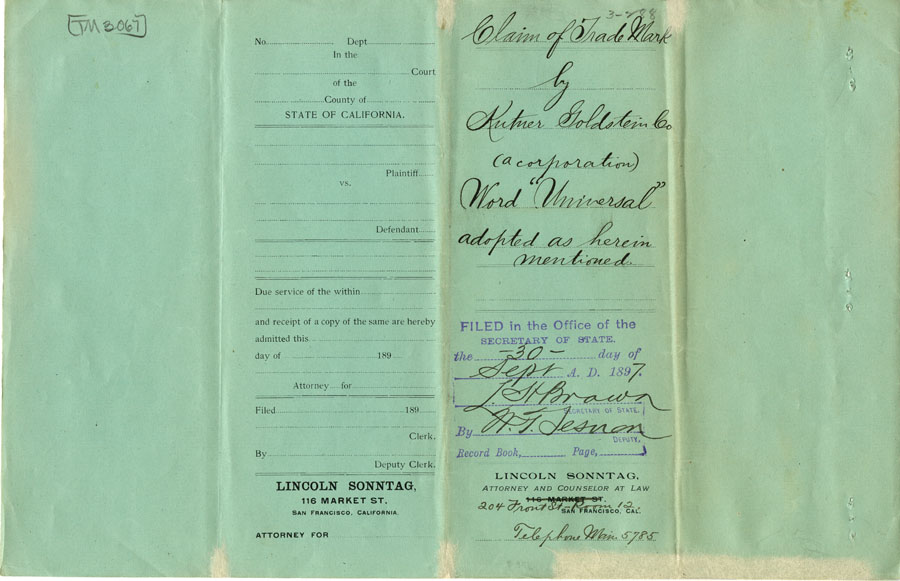 [TM 3067]
No. Dept
In the
Court
of the
County of
STATE OF CALIFORNIA.
Plaintiff
vs.
Defendant
Due service of the within
and receipt of a copy of the same are hereby
admitted this
day of 189
Attorney for
Filed 189
Clerk.
By
Deputy Clerk.
LINCOLN SONNTAG,
116 MARKET ST.
SAN FRANCISCO, CALIFORNIA.
ATTORNEY FOR
Claim of Trade Mark
by
Kutner Goldstein Co
(a corporation)
Word "Universal"
adopted as herein
mentioned.
FILED in the Office of the
SECRETARY OF STATE.
the -30- day of
Sept A. D. 1897.
L H Brown
SECRETARY OF STATE.
By W. T. Sesnon
DEPUTY.
Record Book, Page,
LINCOLN SONNTAG,
ATTORNEY AND COUNSELOR AT LAW
116 MARKET ST.
204 Front St - Room 12.
SAN FRANCISCO, CAL.
Telephone Main 5785